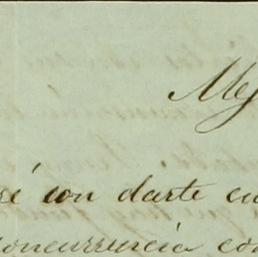 Mej
ré con darte cu
concurrencia con